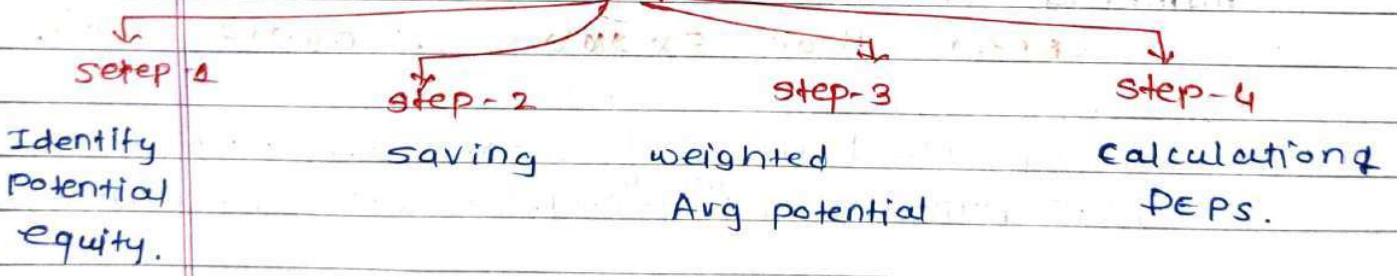 setep-1
step-2
step-3
step-4
Identify
potential
equity.
saving
weighted
Avg potential
calculationof
DEPS.